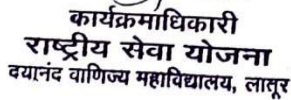 कार्यक्रमाधिकारी
राष्ट्रीय सेवा योजना
दयानंद वाणिज्य महाविद्यालय, लातूर